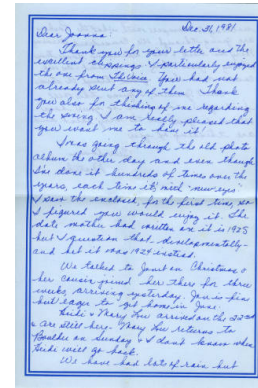 Dec. 31, 1981
Dear Joanna
Thank you for your letter and the
excellent clippings. I particularly enjoyed
the one from The Voice. You had not
already sent any of them. Thank
you also for thinking of me regarding
the swing. I am really pleased that
you want me to have it!
I was going through the old photo
album the other day and even though
I've done it hundreds of times over the
years, each time it's with "new eyes"
I saw the enclosed, for the first time, so
I figured you would enjoy it. The
date mother had written on it is 1928
but I question that developmentally -
and bet it was 1924 instead.
We talked to Janet on Christmas &
her cousin joined her there for three
weeks, arriving yesterday. Jan is fine
but eager to get home in Jan.
& Mary Lou arrived on the 22nd
& are still here. Mary Lou returns to
Boulder on Sunday & I don't know when
will go back.
We have had lots of rain but